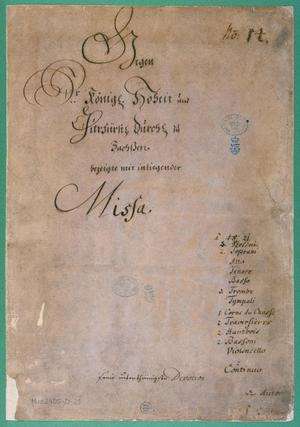 No. 14.
Gegen
Sr. Königl. Hoheit und
Churfürstl. Durchl. zu
Sachßen
bezeigte mit inliegender
Missa.
2 Soprani
Alto
Tenore
Basso
3. Trombe
Tympali
1 Corne du Chasse
2 Traversieres
2 Hautbois
2. Bassoni
Violoncello
e
Continuo
seine unterthänigste Devotion
Mus.2405-D-21